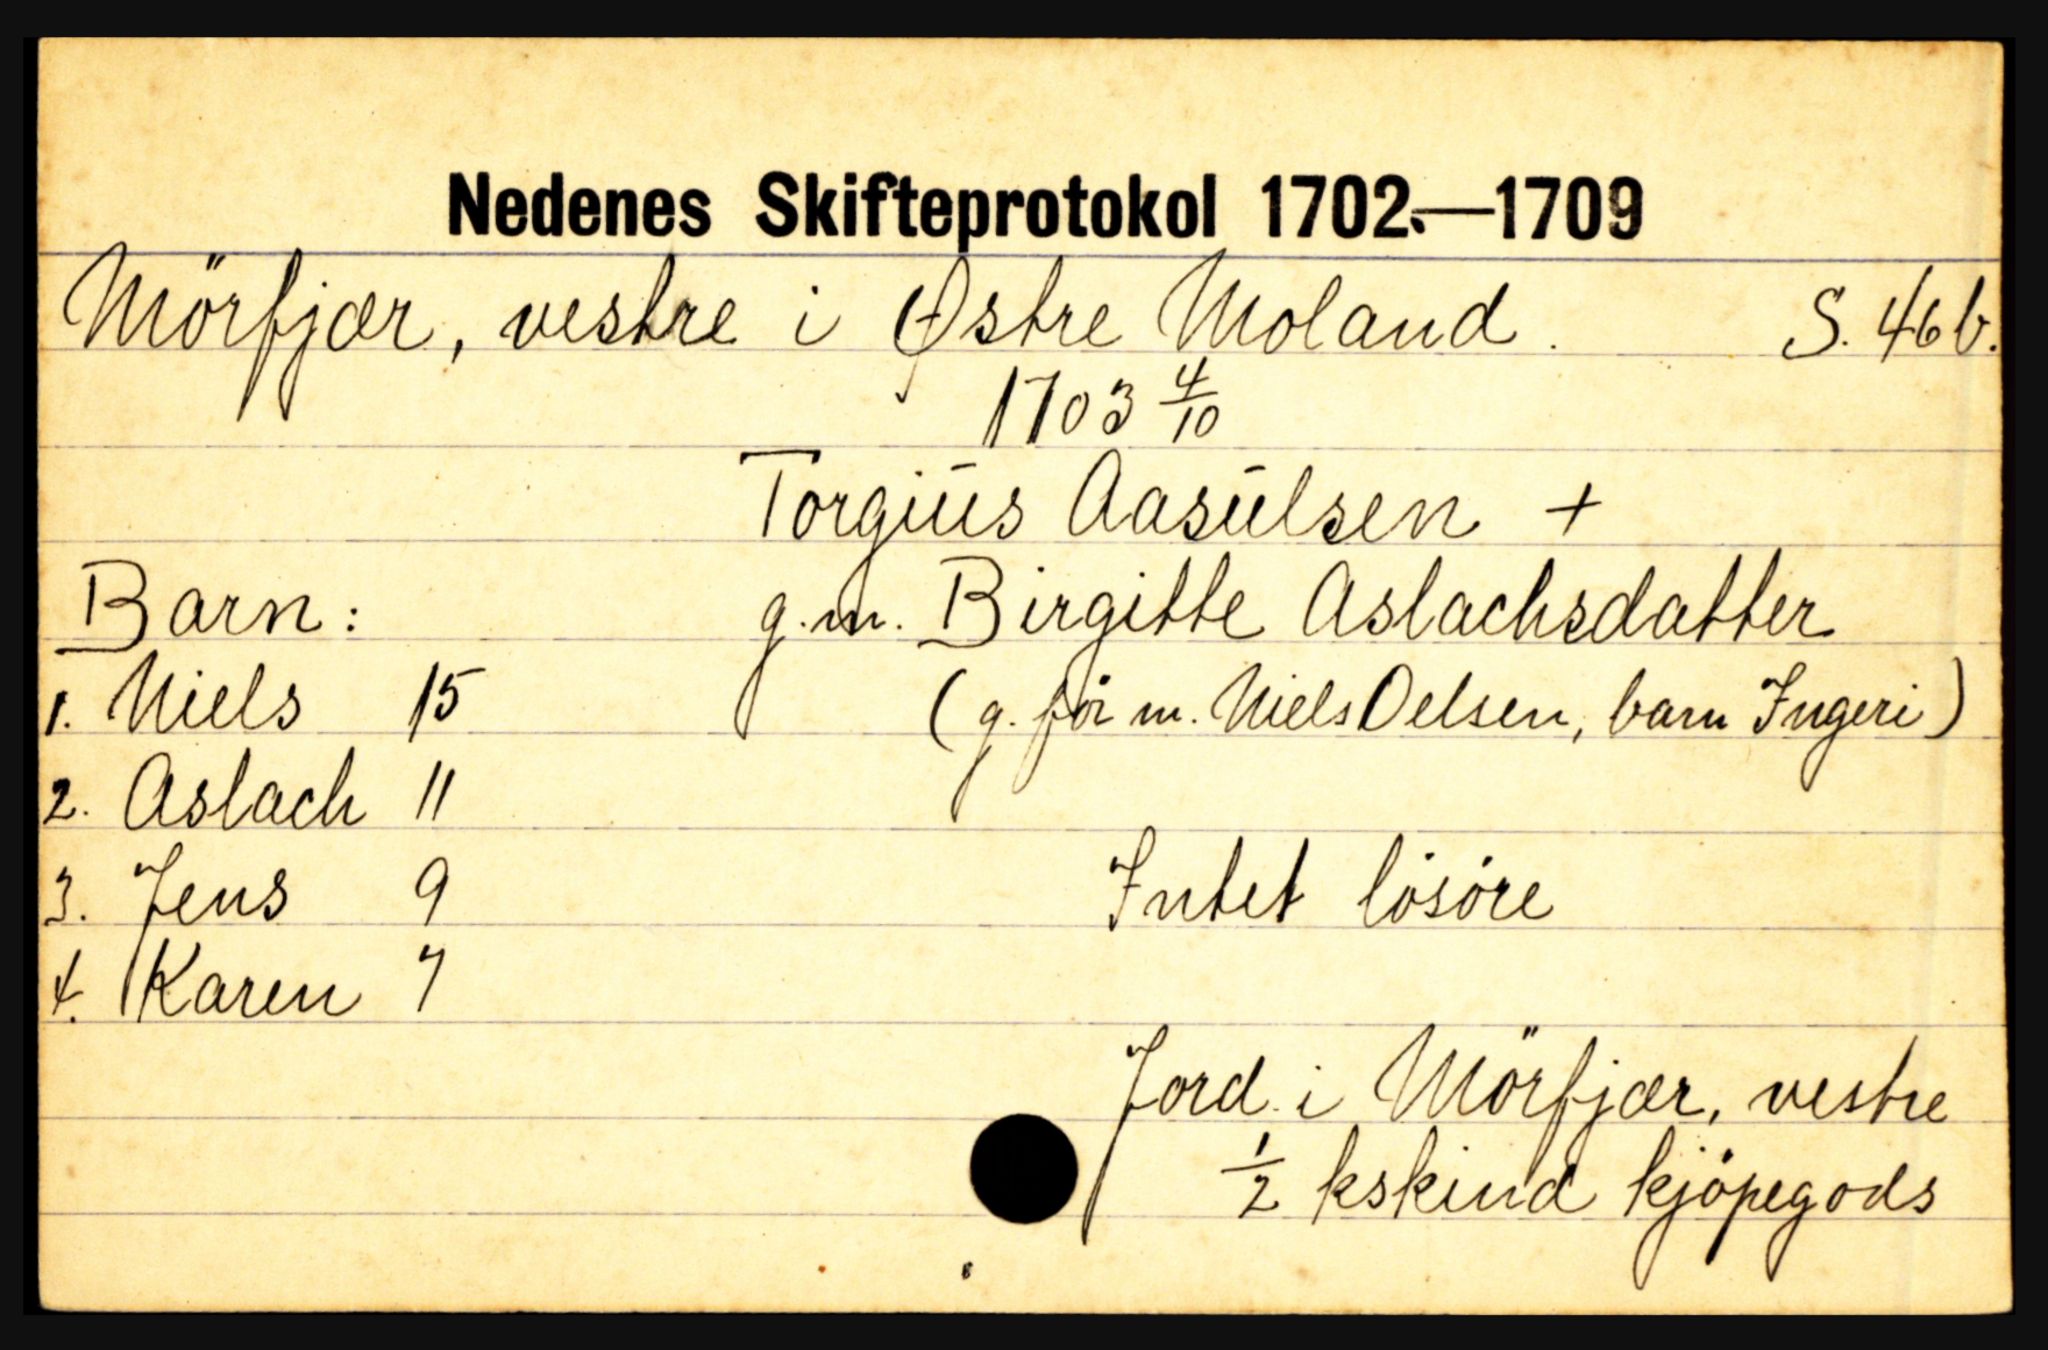 Nedenes Skifteprotokol 1702.—1709
Mörfjær, vestre i Østre Moland. S. 46b.
1703 4/10
Torgius Aasulsen +
Barn: g.m. Birgitte Aslachsdatter
1. Niels 15 (g. för m. Niels Oelsen, barn Ingeri)
2. Aslach 11
3. Jens 9 Intet lösöre
4. Karen 7
Jord i Mörfjær, vestre
1/2 kskind kjöpegods